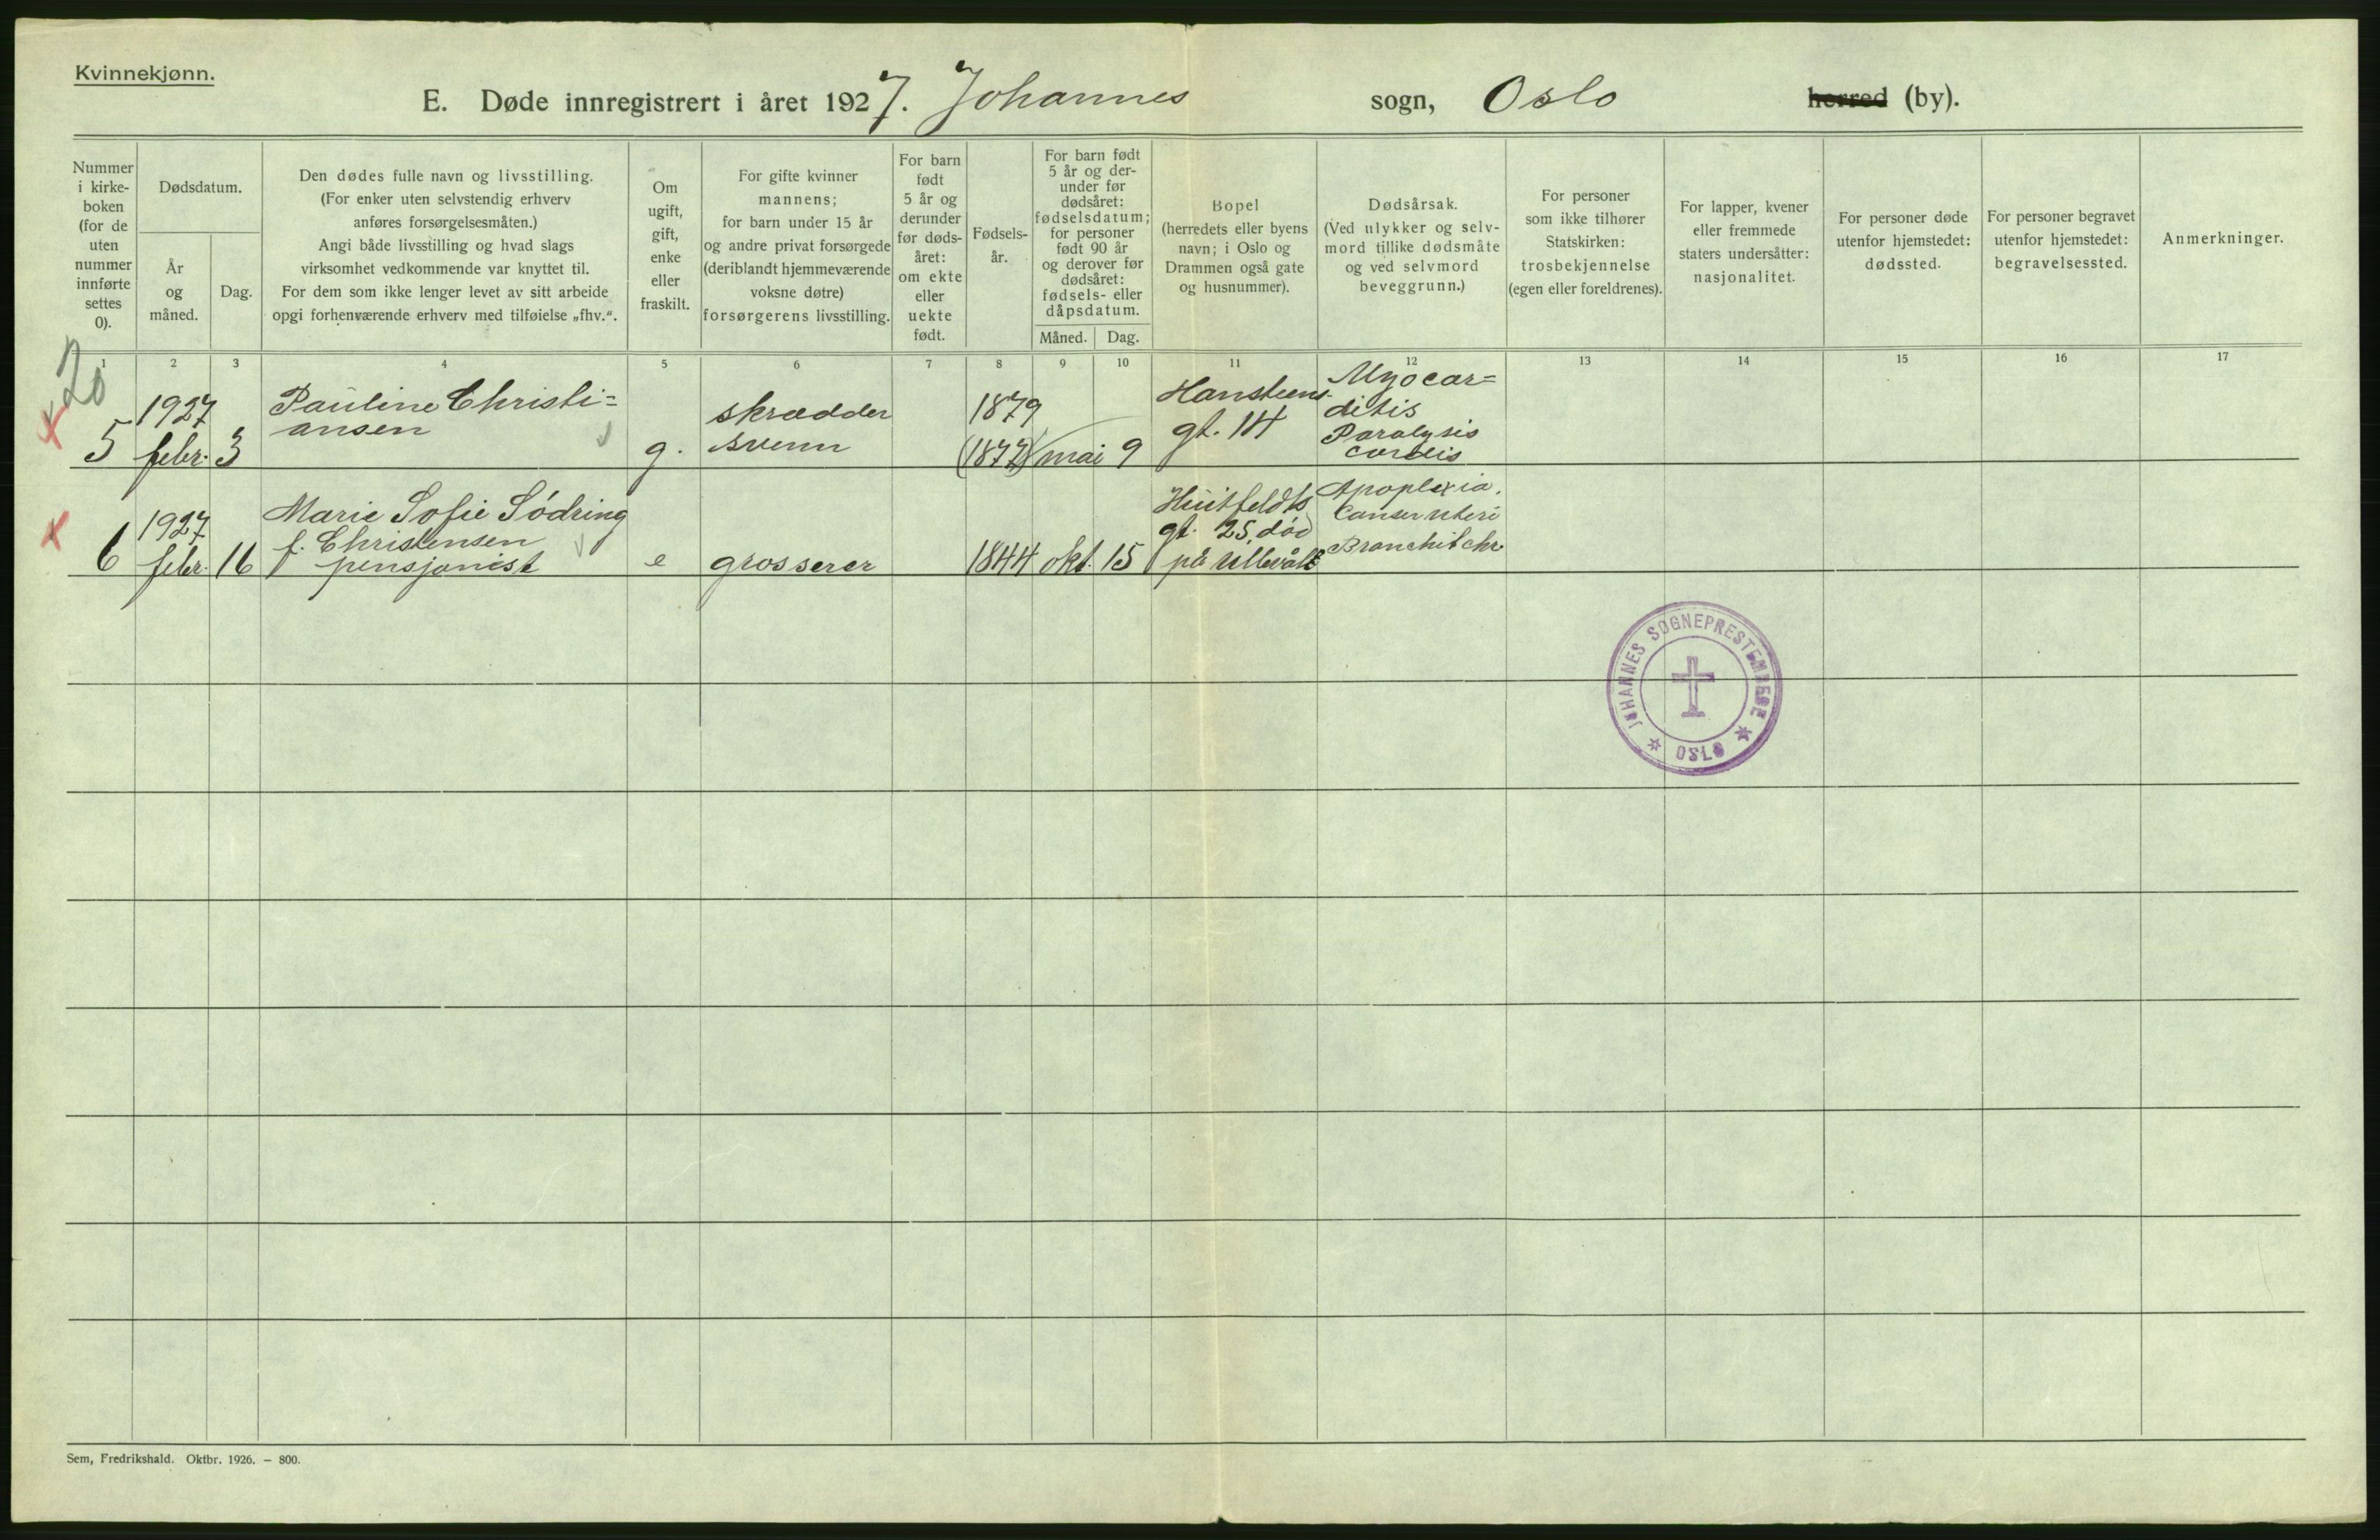 Kvinnekjønn.
E. Døde innregistrert i året 1927. Johannes sogn, Oslo herred (by).
Nummer
i kirke-
boken
(for de
uten
nummer
innførte
settes
0).
Dødsdatum.
År
og
måned.
Dag.
Den dødes fulle navn og livsstilling.
(For enker uten selvstendig erhverv
anføres forsørgelsesmåten.)
Angi både livsstilling og hvad slags
virksomhet vedkommende var knyttet til.
For dem som ikke lenger levet av sitt arbeide
opgi forhenværende erhverv med tilføielse „fhv.“.
Om
ugift,
gift,
enke
eller
fraskilt.
For gifte kvinner
mannens;
for barn under 15 år
og andre privat forsørgede
(deriblandt hjemmeværende
voksne døtre)
forsørgerens livsstilling.
For barn
født
5 år og
derunder
før døds-
året:
om ekte
eller
uekte
født.
Fødsels-
år.
For barn født
5 år og der-
under før
dødsåret:
fødselsdatum;
for personer
født 90 år
og derover før
dødsåret:
fødsels- eller
dåpsdatum.
Måned.
Dag.
Bopel
(herredets eller byens
navn; i Oslo og
Drammen også gate
og husnummer).
Dødsårsak.
(Ved ulykker og selv-
mord tillike dødsmåte
og ved selvmord
beveggrunn.)
For personer
som ikke tilhører
Statskirken:
trosbekjennelse
(egen eller foreldrenes).
For lapper, kvener
eller fremmede
staters undersåtter:
nasjonalitet.
For personer døde
utenfor hjemstedet:
dødssted.
For personer begravet
utenfor hjemstedet:
begravelsessted.
Anmerkninger.
1 2 3 4 5 6 7 8 9 10 11 12 13 14 15 16 17
20
5
1927
febr. 3
Pauline Christi=
ansen
g.
skrædder
svenn
1879
(1877) mai 9
Hansteens-
gt. 14
Myocar=
ditis
Paralysis
cordis
6
1927
febr. 16
Marie Sofie Södring
f. Christensen
pensjonist
e
grosserer
1844 okt. 15
Huitfeldts
gt. 25, död
på Ullevål
Apoplexia.
Cancer uteri
Bronchit chr.
JOHANNES SOGNEPRESTEMBEDE
OSLO
Sem, Fredrikshald. Oktbr. 1926. — 800.